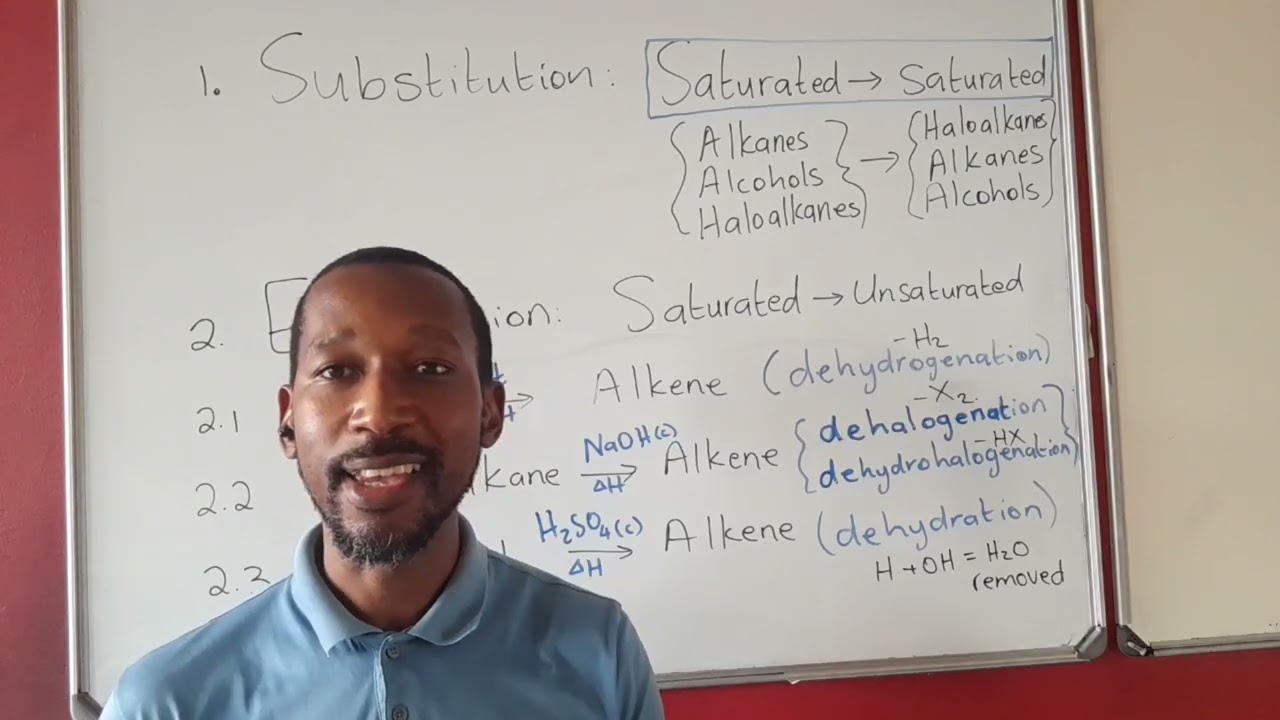 1. Substitution: Saturated → Saturated
{Alkanes
Alcohols
Haloalkanes} → {Haloalkanes
Alkanes
Alcohols}
2. E ion: Saturated → Unsaturated
-H₂
2.1 → Alkene (dehydrogenation)
-X₂
2.2 kane NaOH(c) → ΔH Alkene {dehalogenation
-HX
dehydrohalogenation}
2.3 H₂SO₄(c) → ΔH Alkene (dehydration)
H + OH = H₂O
removed